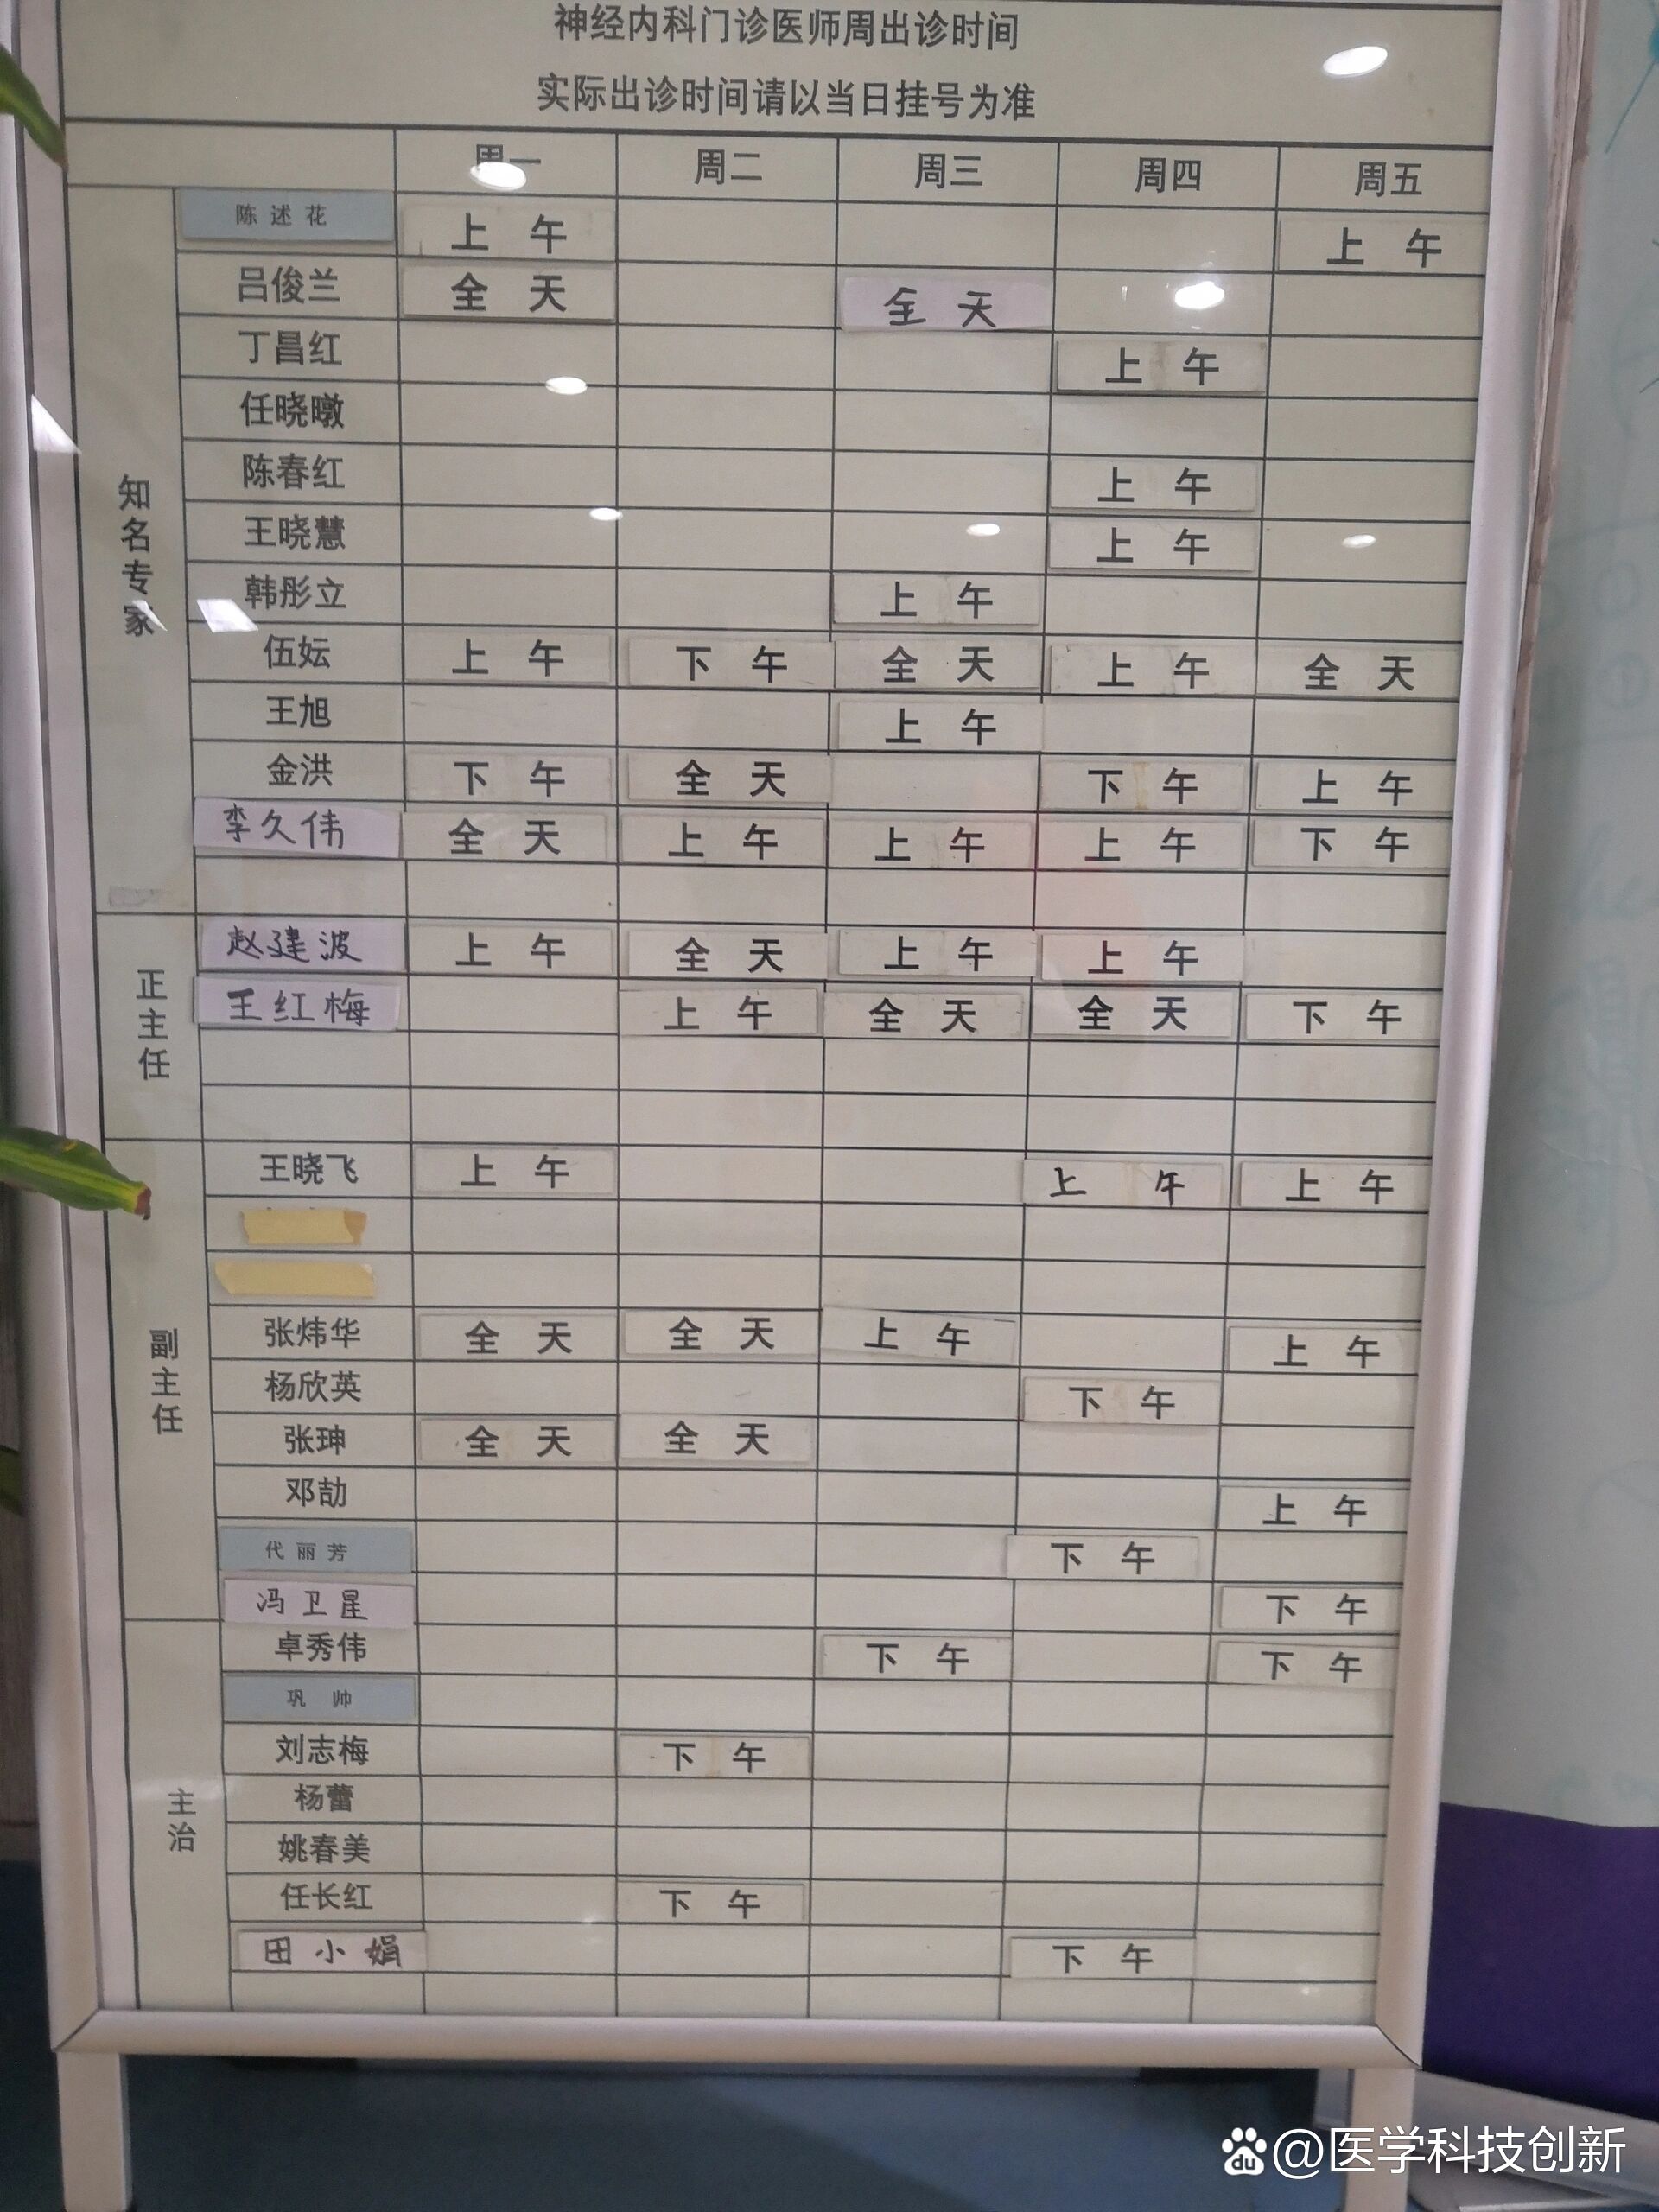 神经内科门诊医师周出诊时间
实际出诊时间请以当日挂号为准
周一 周二 周三 周四 周五
知名专家
陈述花 上午 上午
吕俊兰 全天 全天
丁昌红 上午
任晓暾
陈春红 上午
王晓慧 上午
韩彤立 上午
伍妘 上午 下午 全天 上午 全天
王旭 上午
金洪 下午 全天 下午 上午
李久伟 全天 上午 上午 上午 下午
正主任
赵建波 上午 全天 上午 上午
王红梅 上午 全天 全天 下午
副主任
王晓飞 上午 上午 上午
张炜华 全天 全天 上午 上午
杨欣英 下午
张珅 全天 全天
邓劼 上午
代丽芳 下午
冯卫星 下午
主治
卓秀伟 下午 下午
巩帅
刘志梅 下午
杨蕾
姚春美
任长红 下午
田小娟 下午
du @医学科技创新